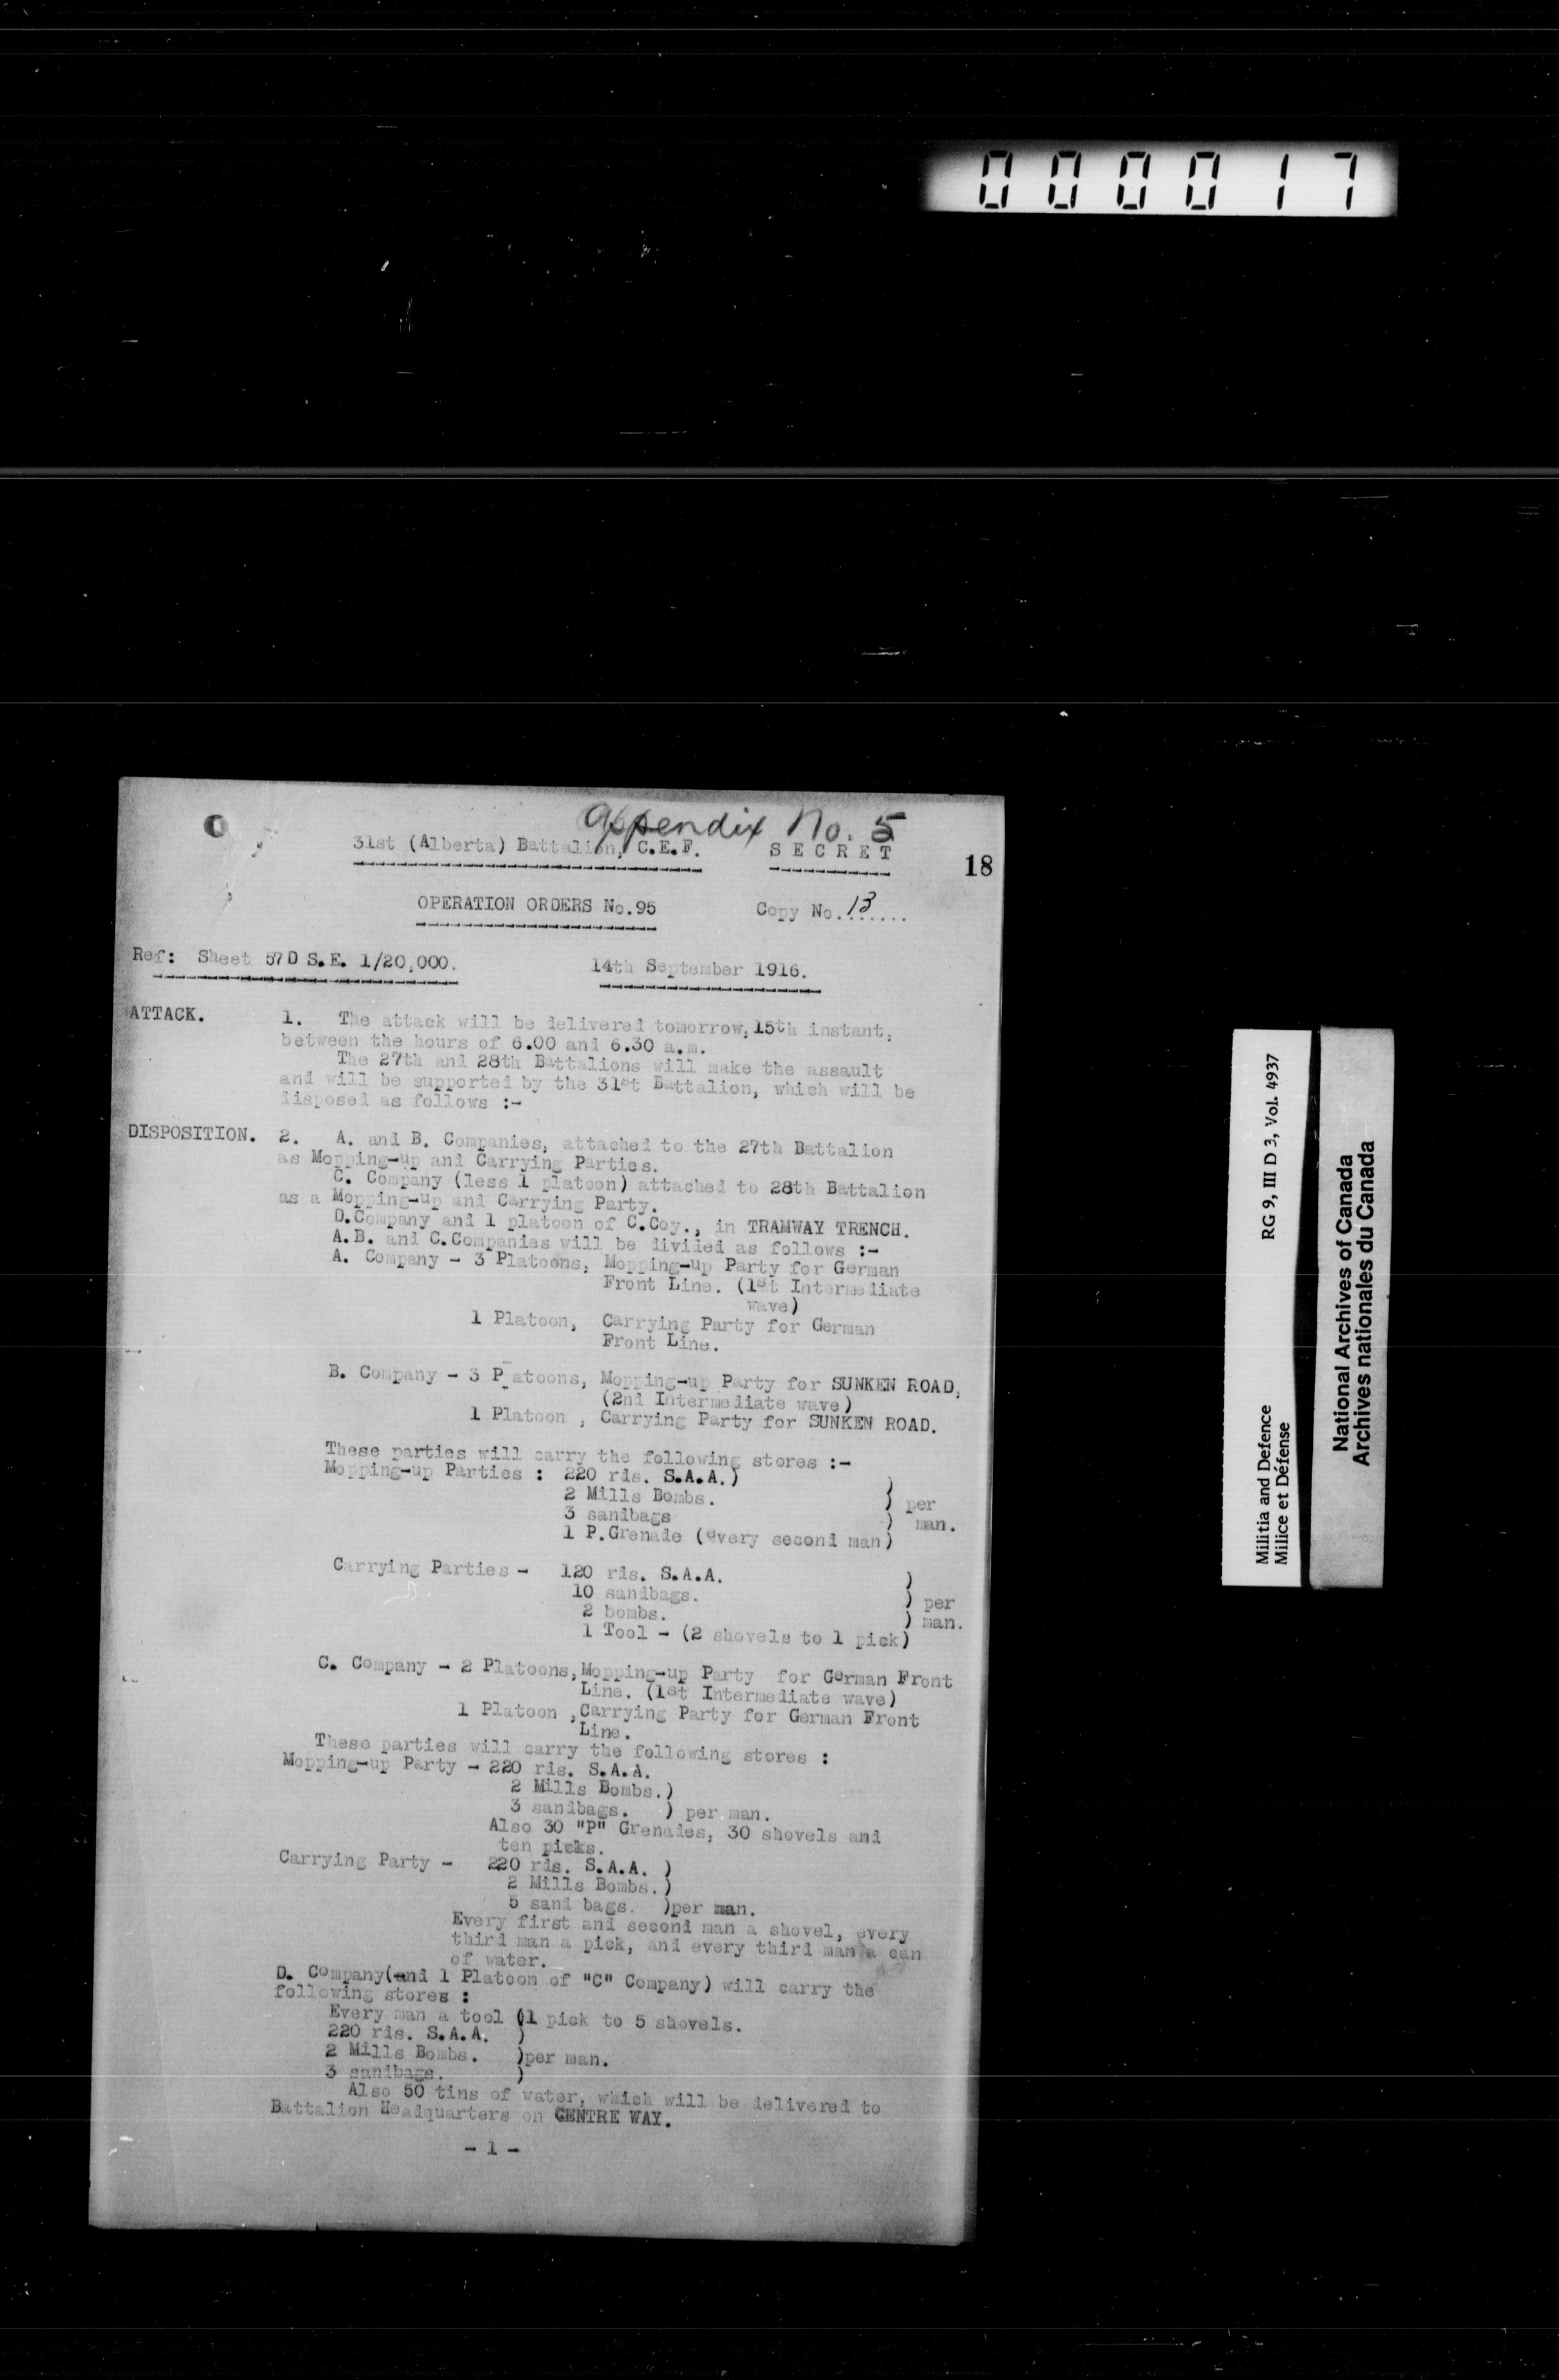 000017
Appendix No. 5
31st (Alberta) Battalion, C.E.F. SECRET
18
OPERATION ORDERS No.95 Copy No.13.......
Ref: Sheet 57D S.E. 1/20,000. 14th September 1916.
ATTACK. 1. The attack will be delivered tomorrow,15th instant,
between the hours of 6.00 and 6.30 a.m.
The 27th and 28th Battalions will make the assault
and will be supported by the 31st Battalion, which will be
disposed as follows :-
DISPOSITION. 2. A. and B. Companies, attached to the 27th Battalion
as Mopping-up and Carrying Parties.
C. Company (less 1 platoon) attached to 28th Battalion
as a Mopping-up and Carrying Party.
D.Company and 1 platoon of C.Coy., in TRAMWAY TRENCH.
A.B. and C.Companies will be divided as follows :-
A. Company - 3 Platoons, Mopping-up Party for German
Front Line. (1st Intermediate
wave)
1 Platoon, Carrying Party for German
Front Line.
B. Company - 3 P atoons, Mopping-up Party for SUNKEN ROAD,
(2nd Intermediate wave)
1 Platoon , Carrying Party for SUNKEN ROAD.
These parties will carry the following stores :-
Mopping-up Parties : 220 rds. S.A.A.)
2 Mills Bombs. ) per
3 sandbags ) man.
1 P.Grenade (every second man)
Carrying Parties - 120 rds. S.A.A. )
10 sandbags. ) per
2 bombs. ) man.
1 Tool - (2 shovels to 1 pick)
C. Company - 2 Platoons,Mopping-up Party for German Front
Line. (1st Intermediate wave)
1 Platoon ,Carrying Party for German Front
Line.
These parties will carry the following stores :
Mopping-up Party - 220 rds. S.A.A.
2 Mills Bombs.)
3 sandbags. ) per man.
Also 30 "P" Grenades, 30 shovels and
ten picks.
Carrying Party - 220 rds. S.A.A. )
2 Mills Bombs.)
5 sand bags. )per man.
Every first and second man a shovel, every
third man a pick, and every third man a can
of water.
D. Company(and 1 Platoon of "C" Company) will carry the
following stores :
Every man a tool (1 pick to 5 shovels.
220 rds. S.A.A. )
2 Mills Bombs. )per man.
3 sandbags. )
Also 50 tins of water, which will be delivered to
Battalion Headquarters on CENTRE WAY.
- 1 -
Militia and Defence RG 9, III D 3, Vol. 4937
Milice et Défense
National Archives of Canada
Archives nationales du Canada